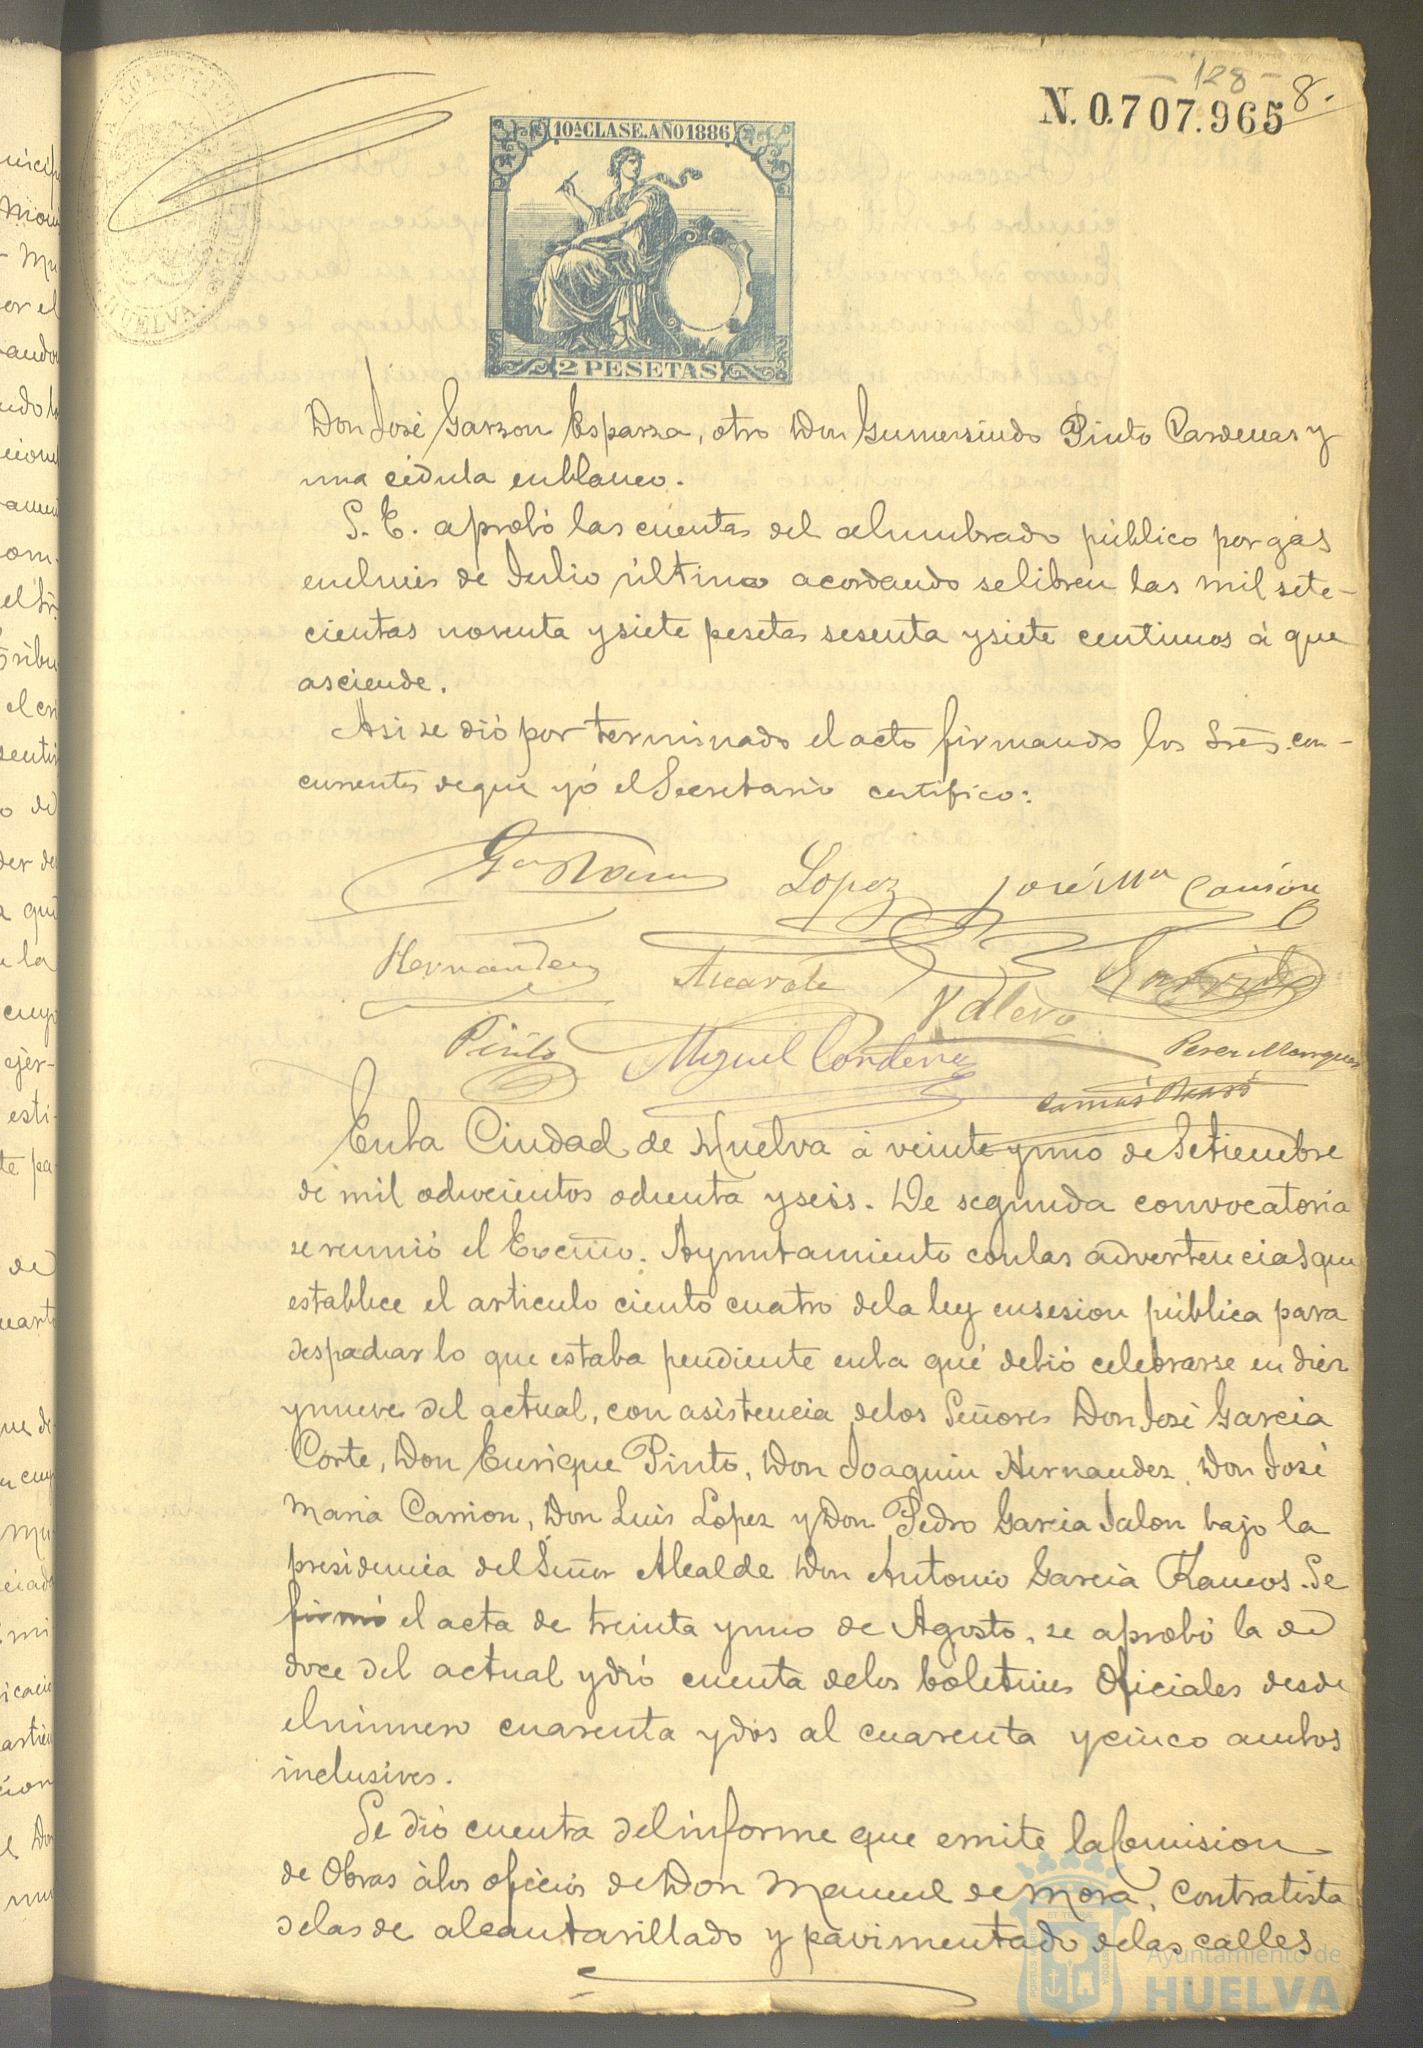 128
N. 0.707.965
8.
10ª CLASE. AÑO 1886
2 PESETAS
HUELVA
Don José Garzon Esparza, otro Don Gumersindo Pinto Cardenas y
una cédula en blanco.
S. E. aprobó las cuentas del alumbrado público por gás
en el mes de Julio último acordando se libren las mil sete-
cientas noventa y siete pesetas sesenta y siete centimos á que
asciende.
Asi se dió por terminado el acto firmando los Sres. con-
currentes de que yó el Secretario certifico:
Lopez José Mª Carrion
Hernandez
Pinto Miguel Perez Marquez
En la Ciudad de Huelva á veinte y uno de Setiembre
de mil ochocientos ochenta y seis. De segunda convocatoria
se reunió el Excmo. Ayuntamiento con las advertencias que
establece el articulo ciento cuatro de la ley en sesion pública para
despachar lo que estaba pendiente en la qué debió celebrarse en diez
y nueve del actual, con asistencia de los Señores Don José Garcia
Corte, Don Enrique Pinto, Don Joaquin Hernandez, Don José
Maria Carrion, Don Luis Lopez y Don Pedro Garcia Jalon bajo la
presidencia del Señor Alcalde Don Antonio Garcia Ramos. Se
firmó el acta de treinta y uno de Agosto, se aprobó la de
doce del actual y dió cuenta de los boletines Oficiales desde
el número cuarenta y dos al cuarenta y cinco ambos
inclusives.
Se dió cuenta del informe que emite la Comision
de Obras á los oficios de Don Manuel de Mora, contratista
de las de alcantarillado y pavimentado de las calles
Ayuntamiento de
HUELVA